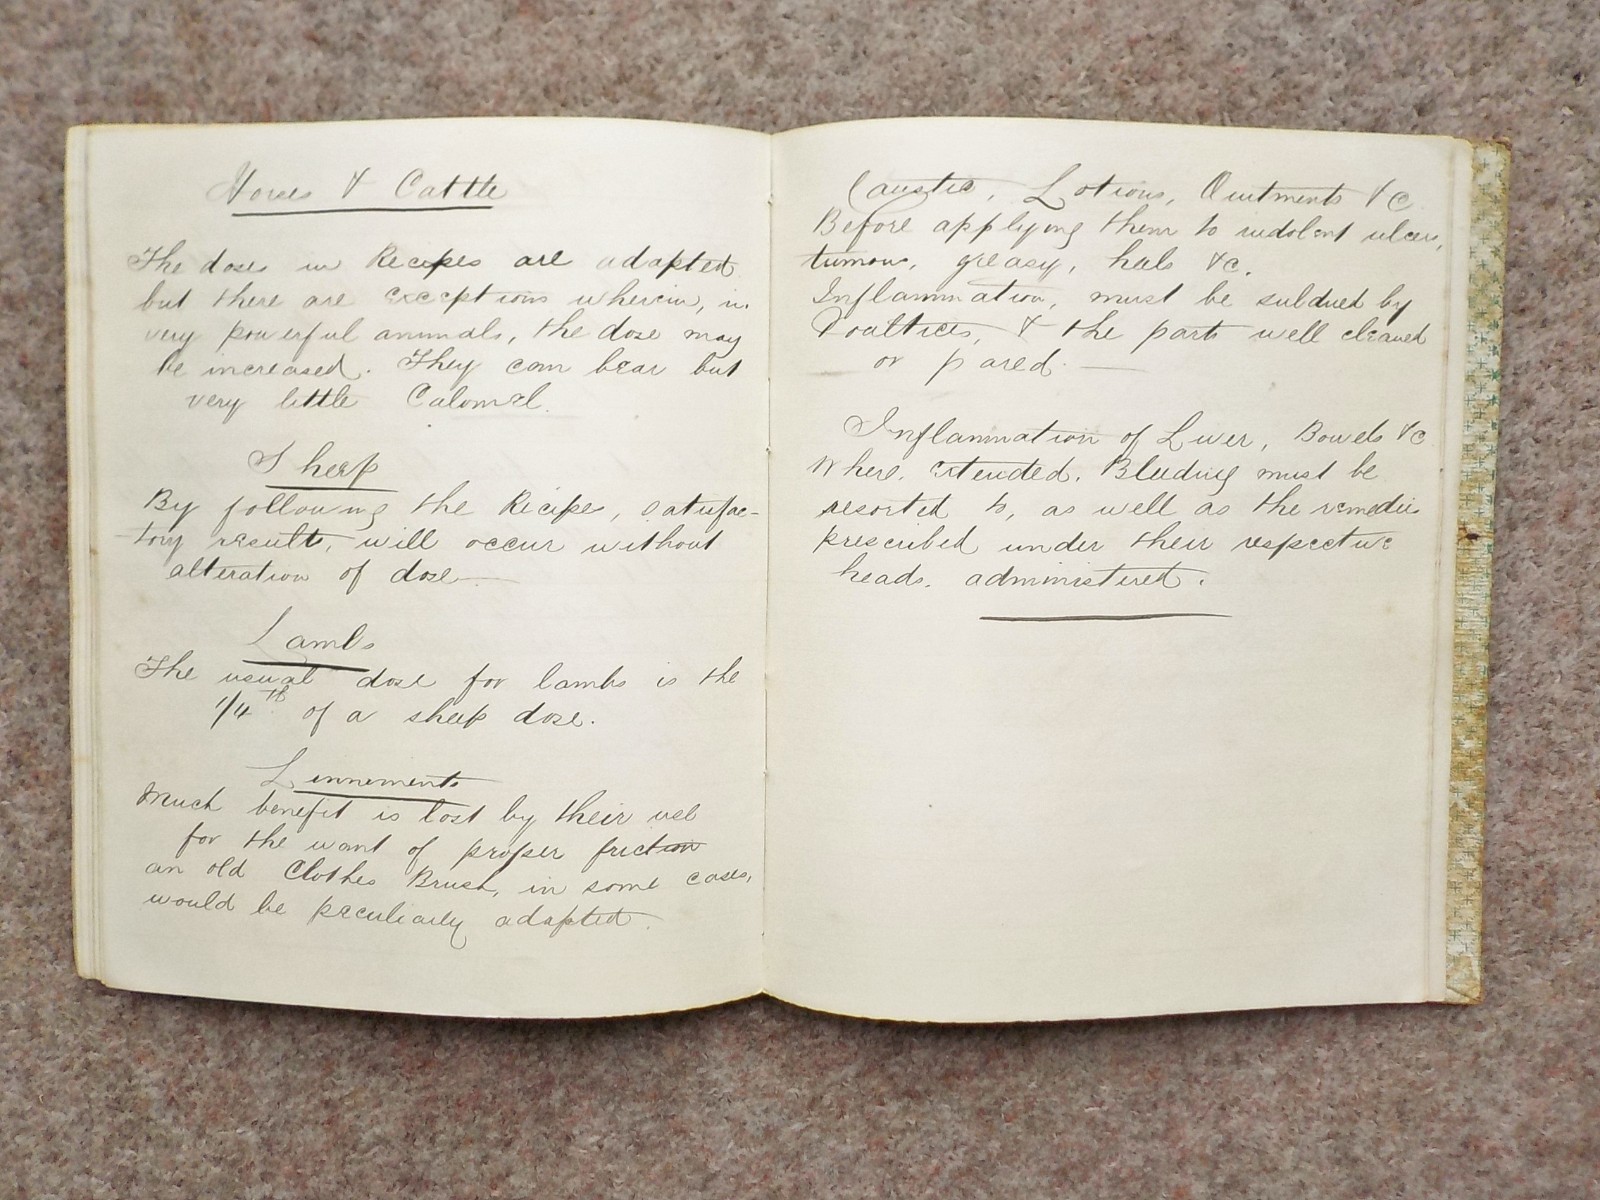 Horses & Cattle
The doses in Recipes are adapted
but there are exceptions wherein, in
very powerful animals, the dose may
be increased. They can bear but
very little Calomel.
Sheep
By following the Recipes, satisfac-
tory results, will occur without
alteration of dose
Lambs
The usual dose for lambs is the
1/4th of a sheep dose.
Linnements
Much benefit is lost by their use
for the want of proper friction
an old Clothes Brush, in some cases,
would be peculiarly adapted.
Caustic, Lotions, Ointments &c
Before applying them to indolent ulcers,
tumours, greasy, heels &c.
Inflammation, must be subdued by
Poultices, & the parts well cleaned
or pared.
Inflammation of Liver, Bowels &c
Where, attended. Bleeding must be
resorted to, as well as the remedies
prescribed under their respective
heads. administered.